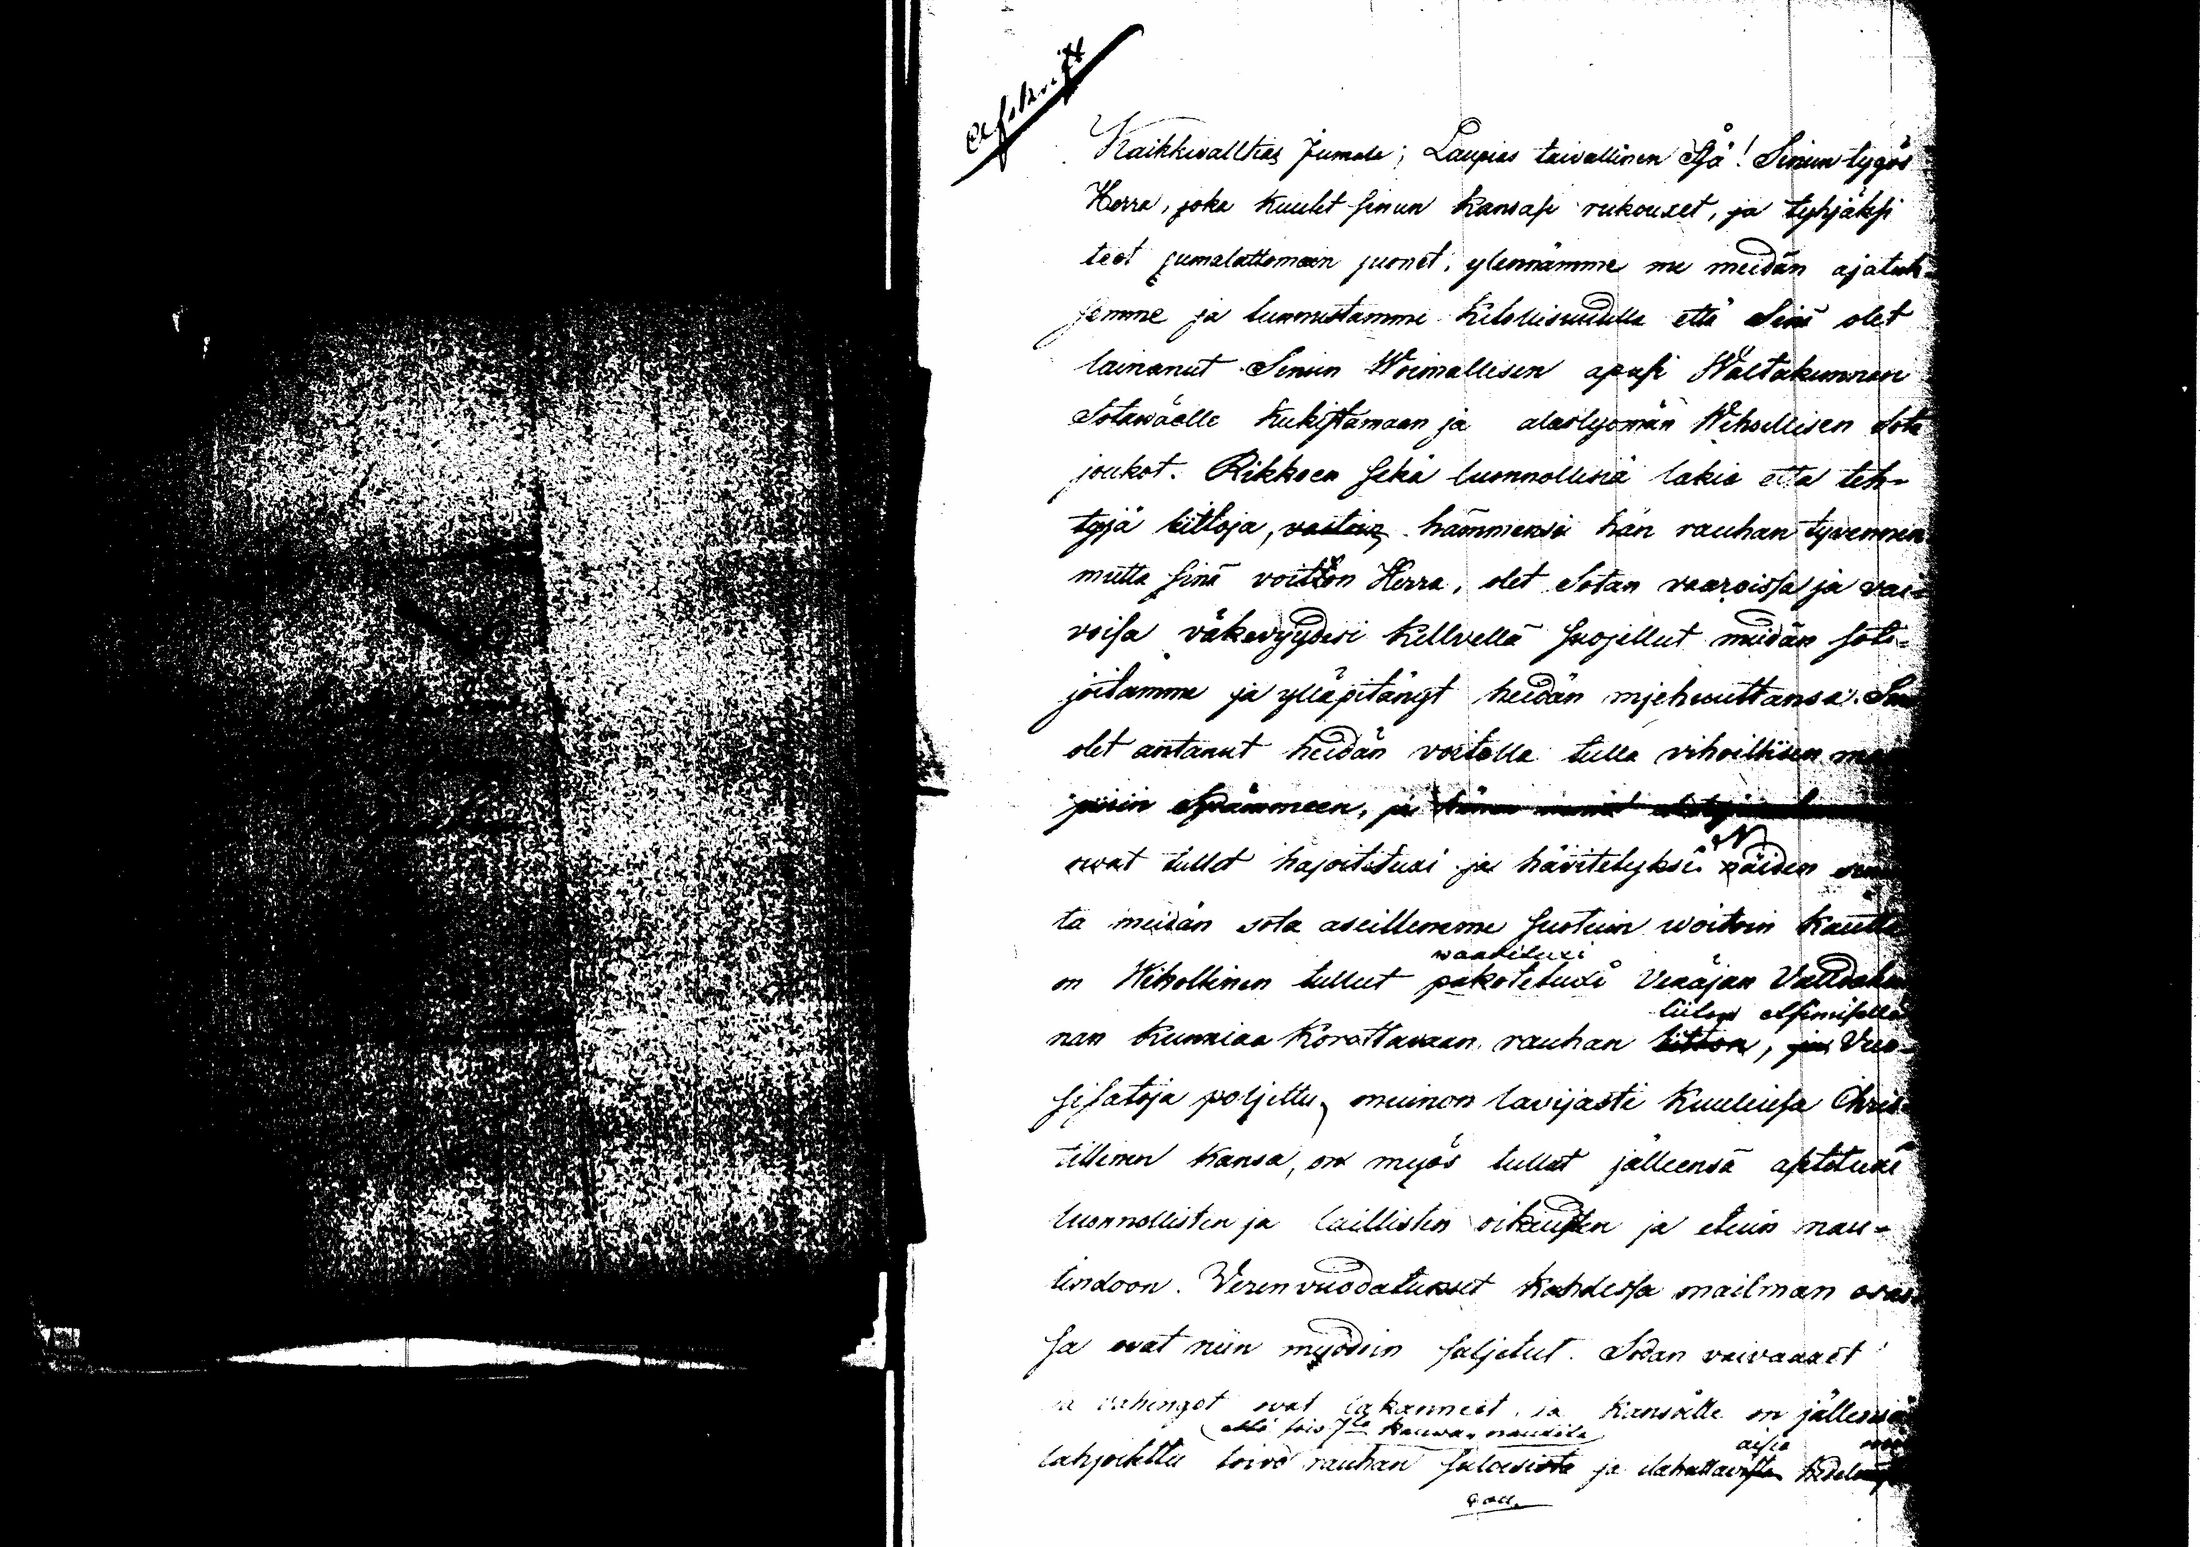 Afskrift
Kaikkivalltias Jumala; Laupias taivallinen Isä! Sinun tygös
Herra, joka kuulet sinun kansasi rukouxet, ja tyhjäksi
teet jumalattomain juonet, ylennämme me meidän ajatuk-
semme ja tunnustamme kitollisuudella että Sinä olet
lainanut Sinun Woimallisen apusi Waltakunnan
Sotawäelle kukistamaan ja alaslyömän Wihollisen Sota
joukot. Rikkoen sekä luonnollisia lakia että teh-
tyjä liittoja, hämmensi hän rauhan tyvennen
mutta sinä voitton Herra, olet Sotan vaaroissa ja vai-
voisa väkevyydesi killvellä suojellut meidän soti-
joitamme ja ylläpitänyt heidän mjehuuttansa. Sinä
olet antanut heidän voitolla tulla vihollisen
sydämmeen, ja
ovat tullet hajoitetuxi ja hävitetyksi Näiden
ta meidän sota aseillemme suotuin woitoin kautta
waadituxi
on Wihollinen tullut pakotetuxi Venäjan Valdakun
nan kunniaa korottavaan rauhan liitton, ja Vuo-
sisatoja poljettu, muinon lavijasti kuuluisa Chris-
tillinen kansa, on myös tullut jälleensä astetuxi
luonnollisten ja laillisten oikeusten ja etuin nau-
tindoon. Verenvuodatuxet kahdessa mailman osas-
sa ovat niin myödöin suljetut. Sodan vaivaaxet
ja vahingot ovat lakanneet, ja kansalle on jällensä
lahjoitettu toivo rauhan suloisista ja ilahuttavista